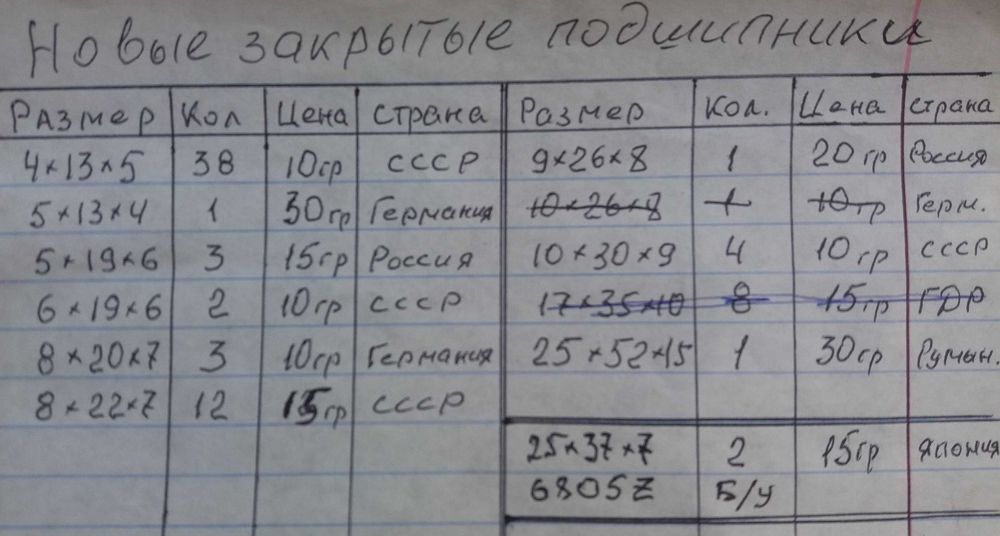 Новые закрытые подшипники
Размер Кол Цена Страна Размер Кол. Цена Страна
4×13×5 38 10гр СССР 9×26×8 1 20гр Россия
5×13×4 1 30гр Германия 10×26×8 1 10гр Герм.
5×19×6 3 15гр Россия 10×30×9 4 10гр СССР
6×19×6 2 10гр СССР 17×35×10 8 15гр ГДР
8×20×7 3 10гр Германия 25×52×15 1 30гр Румын.
8×22×7 12 15гр СССР
25×37×7 2 15гр Япония
6805Z Б/у